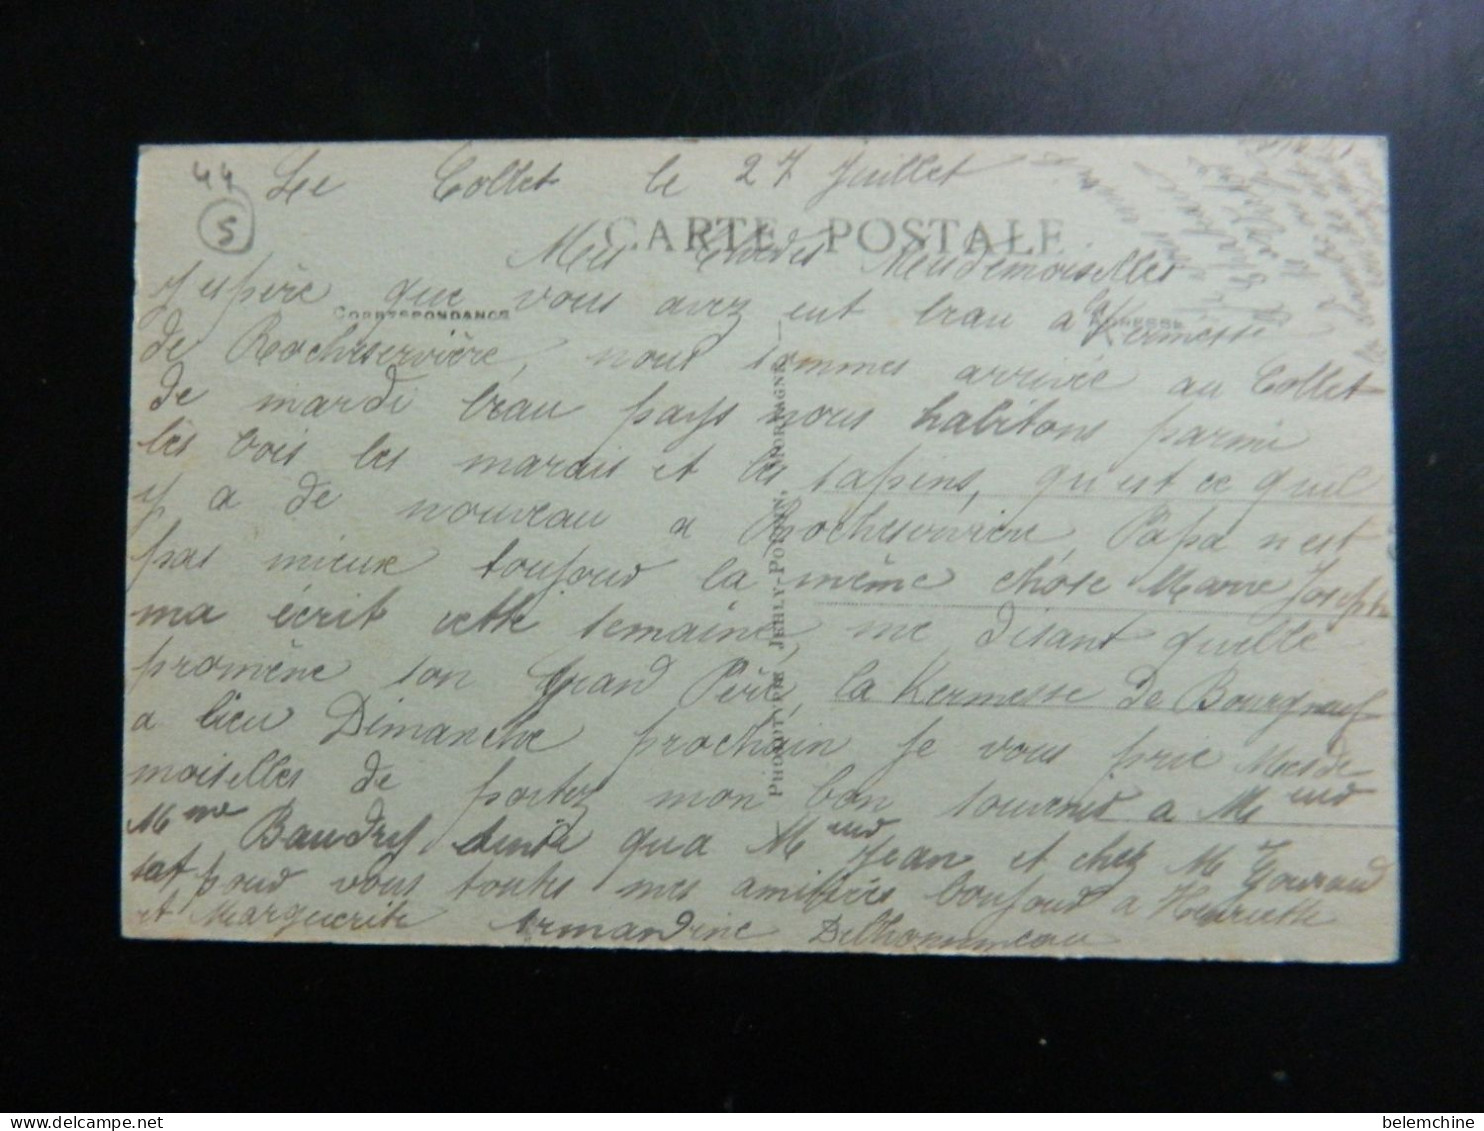 44
5
Le Collet le 27 Juillet
CARTE POSTALE
Mes Chères Mesdemoiselles
CORRESPONDANCE
ADRESSE
j'espère que vous avez eut beau a la Kermesse
de Rocheservière, nous sommes arrivée au Collet
de mardi beau pays nous habitons parmi
les bois les marais et les sapins, qu'est ce quil
y a de nouveau a Rocheservière, Papa n'est
pas mieux toujour la même chose Marie Joseph
ma écrit cette semaine, me disant quelle
promène son Grand Père, la Kermesse de Bourgneuf
a lieu Dimanche prochain je vous prie Mesde-
moiselles de portez mon bon souvenir a M
Mme Baudry qua M Jean et chez M
pour vous toutes mes amitiées bonjour a Henriette
et Marguerite Armandine Delhommeau
PHOTOTYPIE JEHLY-POUPIN, MORTAGNE